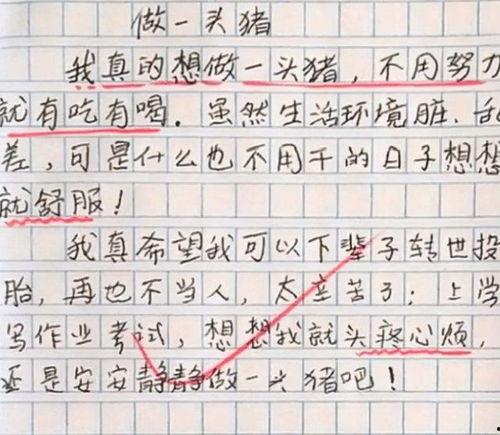 做一头猪
我真的想做一头猪，不用努力
就有吃有喝．虽然生活环境脏．乱
差，可是什么也不用干的日子想想
就舒服！
我真希望我可以下辈子转世投
胎，再也不当人，太辛苦了；上学
写作业考试，想想我就头疼心烦，
还是安安静静做一头猪吧！